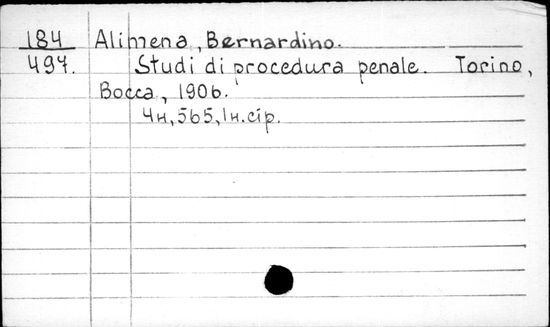 184 Alimena, Bernardino.
497. Studi di procedura penale. Torino,
Bocca, 1906.
4н, 565, 1н. cip.